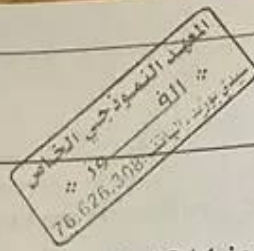 المعهد النموذجي الخاص
الفـــوز
سيدي بوزيد - الهاتف: 76.626.308